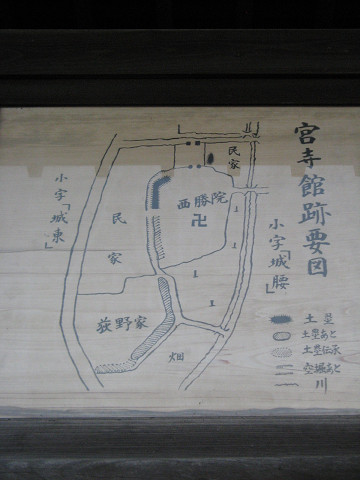 宮寺館跡要図
小字「城腰」
小字「城東」
民家
民家
西勝院
卍
荻野家
畑
土塁
土塁あと
土塁伝承
空堀あと
川